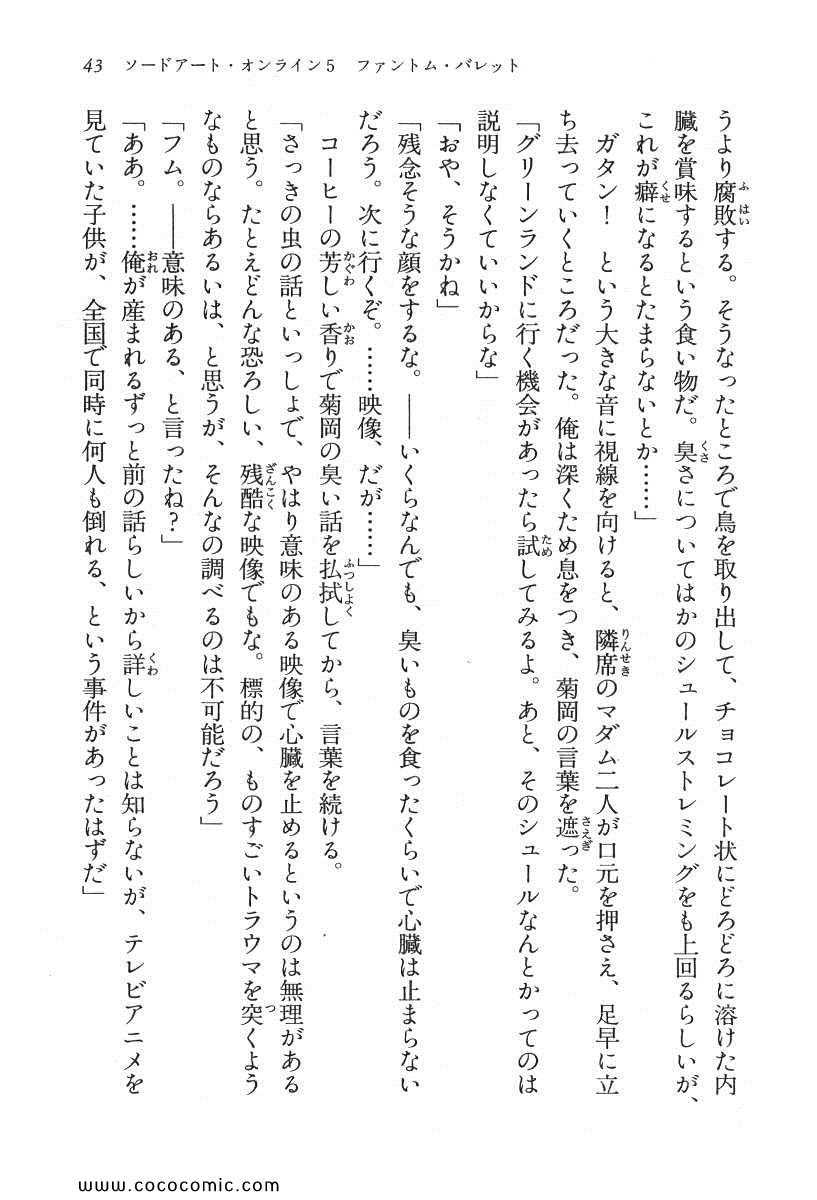 43　ソードアート・オンライン5　ファントム・バレット
うより腐敗する。そうなったところで鳥を取り出して、チョコレート状にどろどろに溶けた内
臓を賞味するという食い物だ。臭さについてはかのシュールストレミングをも上回るらしいが、
これが癖になるとたまらないとか……」
　ガタン！　という大きな音に視線を向けると、隣席のマダム二人が口元を押さえ、足早に立
ち去っていくところだった。俺は深くため息をつき、菊岡の言葉を遮った。
「グリーンランドに行く機会があったら試してみるよ。あと、そのシュールなんとかってのは
説明しなくていいからな」
「おや、そうかね」
「残念そうな顔をするな。――いくらなんでも、臭いものを食ったくらいで心臓は止まらない
だろう。次に行くぞ。……映像、だが……」
　コーヒーの芳しい香りで菊岡の臭い話を払拭してから、言葉を続ける。
「さっきの虫の話といっしょで、やはり意味のある映像で心臓を止めるというのは無理がある
と思う。たとえどんな恐ろしい、残酷な映像でもな。標的の、ものすごいトラウマを突くよう
なものならあるいは、と思うが、そんなの調べるのは不可能だろう」
「フム。――意味のある、と言ったね？」
「ああ。……俺が産まれるずっと前の話らしいから詳しいことは知らないが、テレビアニメを
見ていた子供が、全国で同時に何人も倒れる、という事件があったはずだ」
www.cococomic.com/